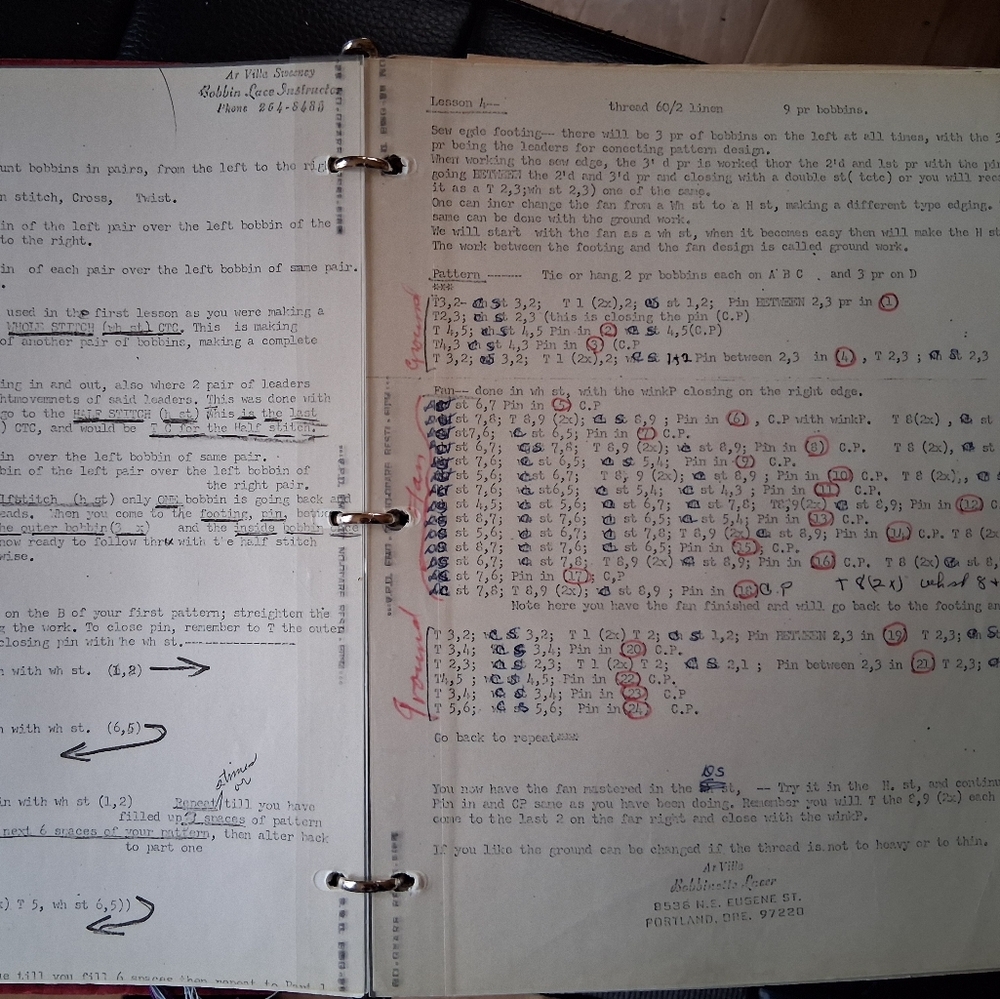 Ar Villa Sweeney
Bobbin Lace Instructor
Phone 254-8486
unt bobbins in pairs, from the left to the righ
n stitch, Cross, Twist.
in of the left pair over the left bobbin of the
to the right.
in of each pair over the left bobbin of same pair.
used in the first lesson as you were making a
WHOLE STITCH (wh st) CTC. This is making
of another pair of bobbins, making a complete
ing in and out, also where 2 pair of leaders
htmovmnets of said leaders. This was done with
go to the HALF STITCH (h st) This is the last
) CTC, and would be T C for the Half stitch.
in over the left bobbin of same pair.
bin of the left pair over the left bobbin of
the right pair.
lfstitch (h st) only ONE bobbin is going back and
eads. When you come to the footing, pin,
he outer bobbin(3 x) and the inside bobbin
now ready to follow thru with t'e half stitch
wise.
on the B of your first pattern; streighten the
g the work. To close pin, remember to T the outer
closing pin with he wh st.
n with wh st. (1,2)
n with wh st. (6,5)
stimes
or
in with wh st (1,2) Repeat till you have
filled up spaces of pattern
next 6 spaces of your pattern, then alter back
to part one
) T 5, wh st 6,5))
till you fill 6 spaces then repeat to Part 1
Lesson 4--- thread 60/2 linen 9 pr bobbins.
Sew egde footing-- there will be 3 pr of bobbins on the left at all times, with the 3
pr being the leaders for conecting pattern design.
When working the sew edge, the 3' d pr is worked thor the 2'd and 1st pr with the pin
going BETWEEN the 2'd and 3'd pr and closing with a double st( tctc) or you will
it as a T 2,3;wh st 2,3) one of the same.
One can iner change the fan from a Wh st to a H st, making a different type edging.
same can be done with the ground work.
We will start with the fan as a wh st, when it becomes easy then will make the H st
The work between the footing and the fan design is called ground work.
Pattern ------- Tie or hang 2 pr bobbins each on A B C and 3 pr on D
Ground
T3,2- st 3,2; T 1 (2x),2; st 1,2; Pin BETWEEN 2,3 pr in 1
T2,3; st 2,3 (this is closing the pin (C.P)
T 4,5; st 4,5 Pin in 2 st 4,5(C.P)
T4,3 st 4,3 Pin in 3 (C.P
T 3,2; 3,2; T 1 (2x),2; 1,2 Pin between 2,3 in 4, T 2,3 ; st 2,3
Fan
Fan-- done in wh st, with the winkP closing on the right edge.
st 6,7 Pin in 5 C.P
st 7,8; T 8,9 (2x); 8,9 ; Pin in 6 , C.P with winkP. T 8(2x) , st
st7,6; st 6,5; Pin in 7 C.P.
st 6,7; 7,8; T 8,9 (2x); st 8,9; Pin in 8 C.P. T 8 (2x), st
st 7,6; st 6,5; st 5,4; Pin in 9 C.P.
st 5,6; st 6,7; T 8, 9 (2x); st 8,9 ; Pin in 10 C.P. T 8 (2x),, st
st 7,6; st6,5; st 5,4; st 4,3 ; Pin in 11 C.P.
st 4,5; st 5,6; st 6,7; st 7,8; T8,9(2x); st 8,9; Pin in 12 C
st 8,7; st 7,6; st 6,5; st 5,4; Pin in 13 C.P.
st 5,6; st 6,7; st 7,8; T 8,9 (2x) st 8,9; Pin in 14 C.P. T 8 (2x
st 8,7; st 7,6; st 6,5; Pin in 15 C.P.
st 6,7; st 7,8; T 8,9 (2x) st 8,9; Pin in 16 C.P. T 8 (2x) st 8,
st 7,6; Pin in 17; C,P
st 7,8; T 8,9 (2x); st 8,9 ; Pin in 18 C.P T 8(2x) wh st 8+
Note here you have the fan finished and will go back to the footing an
Ground
T 3,2; 3,2; T 1 (2x) T 2; st 1,2; Pin BETWEEN 2,3 in 19 T 2,3; St
T 3,4; S 3,4; Pin in 20 C.P.
T 2,3; S 2,3; T 1 (2x) T 2; S 2,1 ; Pin between 2,3 in 21 T 2,3;
T4,5 ; S 4,5; Pin in 22 C.P.
T 3,4; st 3,4; Pin in 23 C.P
T 5,6; st 5,6; Pin in 24 C.P.
Go back to repeat
DS
You now have the fan mastered in the st, -- Try it in the H. st, and continu
Pin in and CP same as you have been doing. Remember you will T the 8,9 (2x) each
come to the last 2 on the far right and close with the winkP.
If you like the ground can be changed if the thread is not to heavy or to thin.
Ar Villa
Bobbinette Lacer
8536 N.E. EUGENE ST.
PORTLAND, ORE. 97220